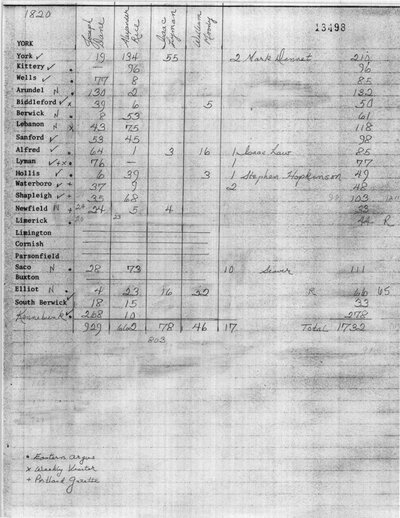 1820
13498
YORK Joseph Dane Alexander Rice Isaac Lyman William Moody
York ✓ • 19 134 55 2 Mark Dennet 210
Kittery ✓ • — 96 96
Wells ✓ • 77 8 85
Arundel N • 130 2 132
Biddeford ✓ x 39 6 5 50
Berwick N • 8 53 61
Lebanon N x 43 75 118
Sanford ✓ • 53 45 98
Alfred ✓ • 64 1 3 16 1 Isaac Law 85
Lyman ✓+x • 76 — 1 77
Hollis ✓ • 6 39 3 1 Stephen Hopkinson 49
Waterboro ✓ + 37 9 2 48
Shapleigh ✓ + 35 68 103
Newfield N + 24 5 4 33
Limerick • 20 23 44 R
Limington
Cornish
Parsonfield
Saco N • 28 73 10 Seaver 111
Buxton
Elliot N • 4 23 16 22 R 66 65
South Berwick ✓ 18 15 33
Kennebunk ✓ • 268 10 278
929 662 78 46 17 Total 1732
803
• Eastern Argus
x Weekly Visitor
+ Portland Gazette